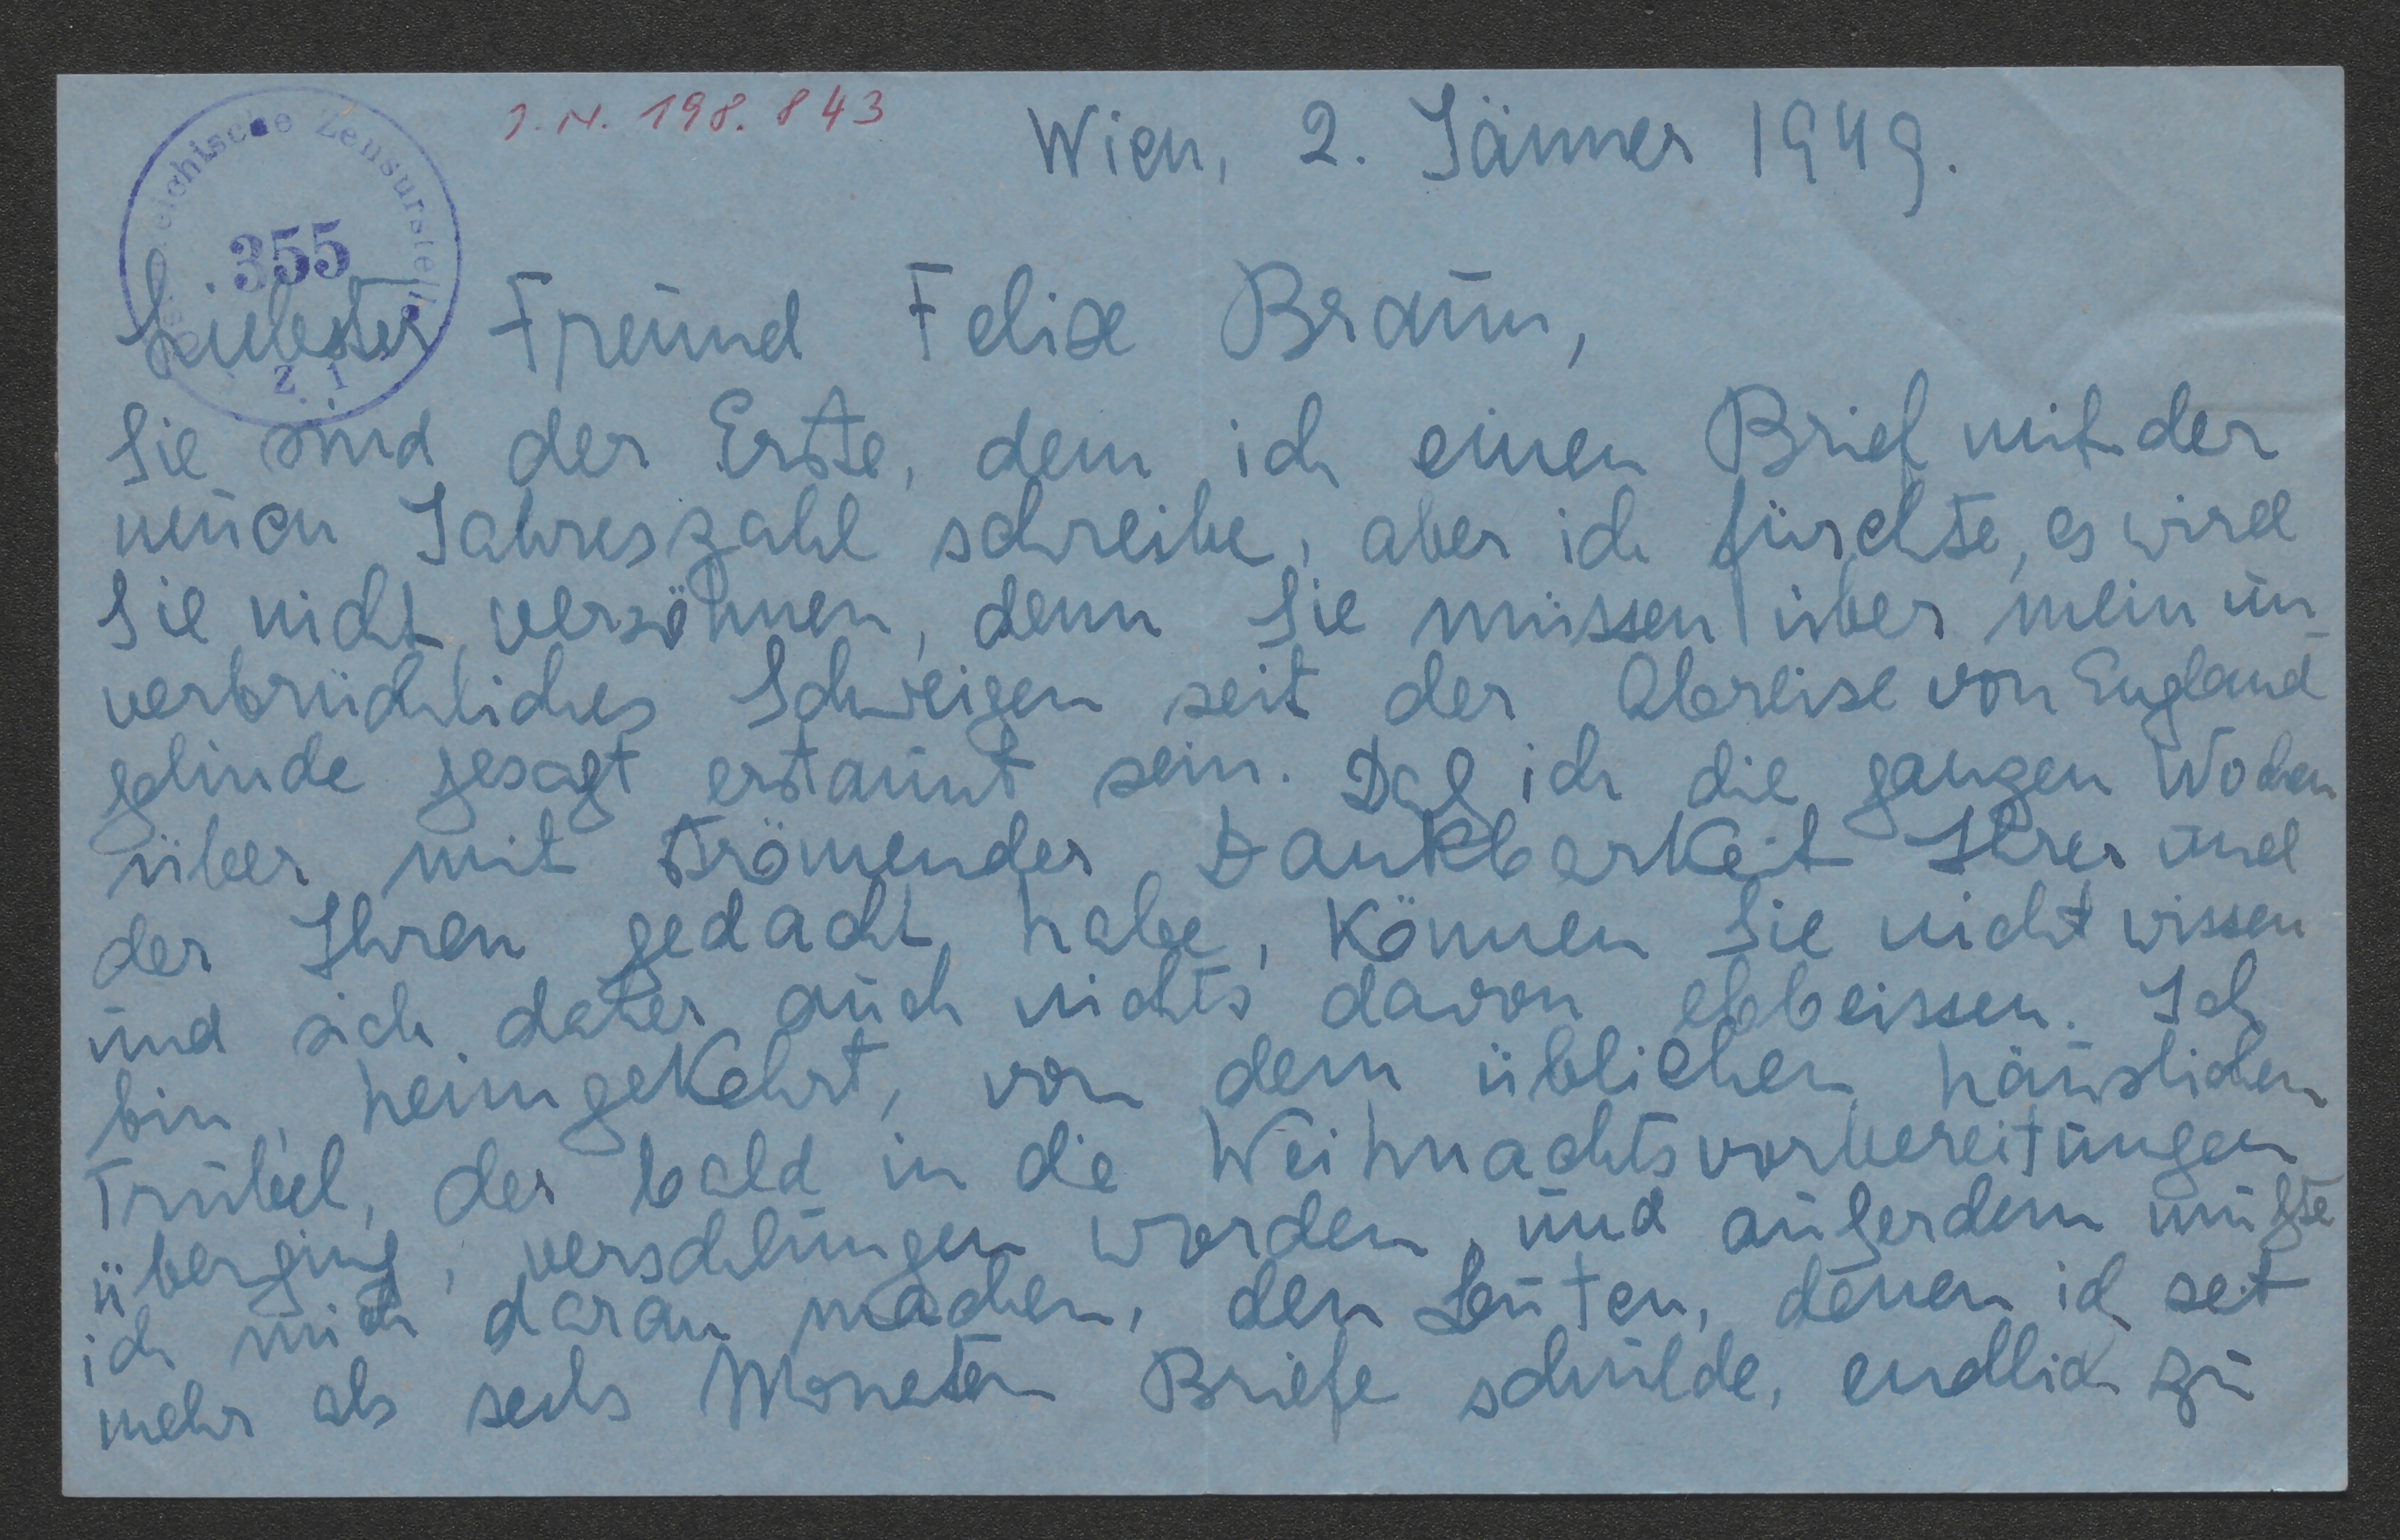 J.N. 198.843
Wien, 2. Jänner 1949.
Österreichische Zensurstelle
355
Z. 1
Liebster Freund Felix Braun,
Sie sind der Erste, dem ich einen Brief mit der
neuen Jahreszahl schreibe, aber ich fürchte, es wird
Sie nicht versöhnen, denn Sie müssen über mein un-
verbrüchliches Schweigen seit der Abreise von England
gelinde gesagt erstaunt sein. Daß ich die ganzen Wochen
über mit strömender Dankbarkeit Ihrer und
der Ihren gedacht habe, können Sie nicht wissen
und sich daher auch nichts davon abbeissen. Ich
bin, heimgekehrt, von dem üblichen häuslichen
Trubel, der bald in die Weihnachtsvorbereitungen
überging, verschlungen worden, und außerdem mußte
ich mich daran machen, den Leuten, denen ich seit
mehr als sechs Monaten Briefe schulde, endlich zu